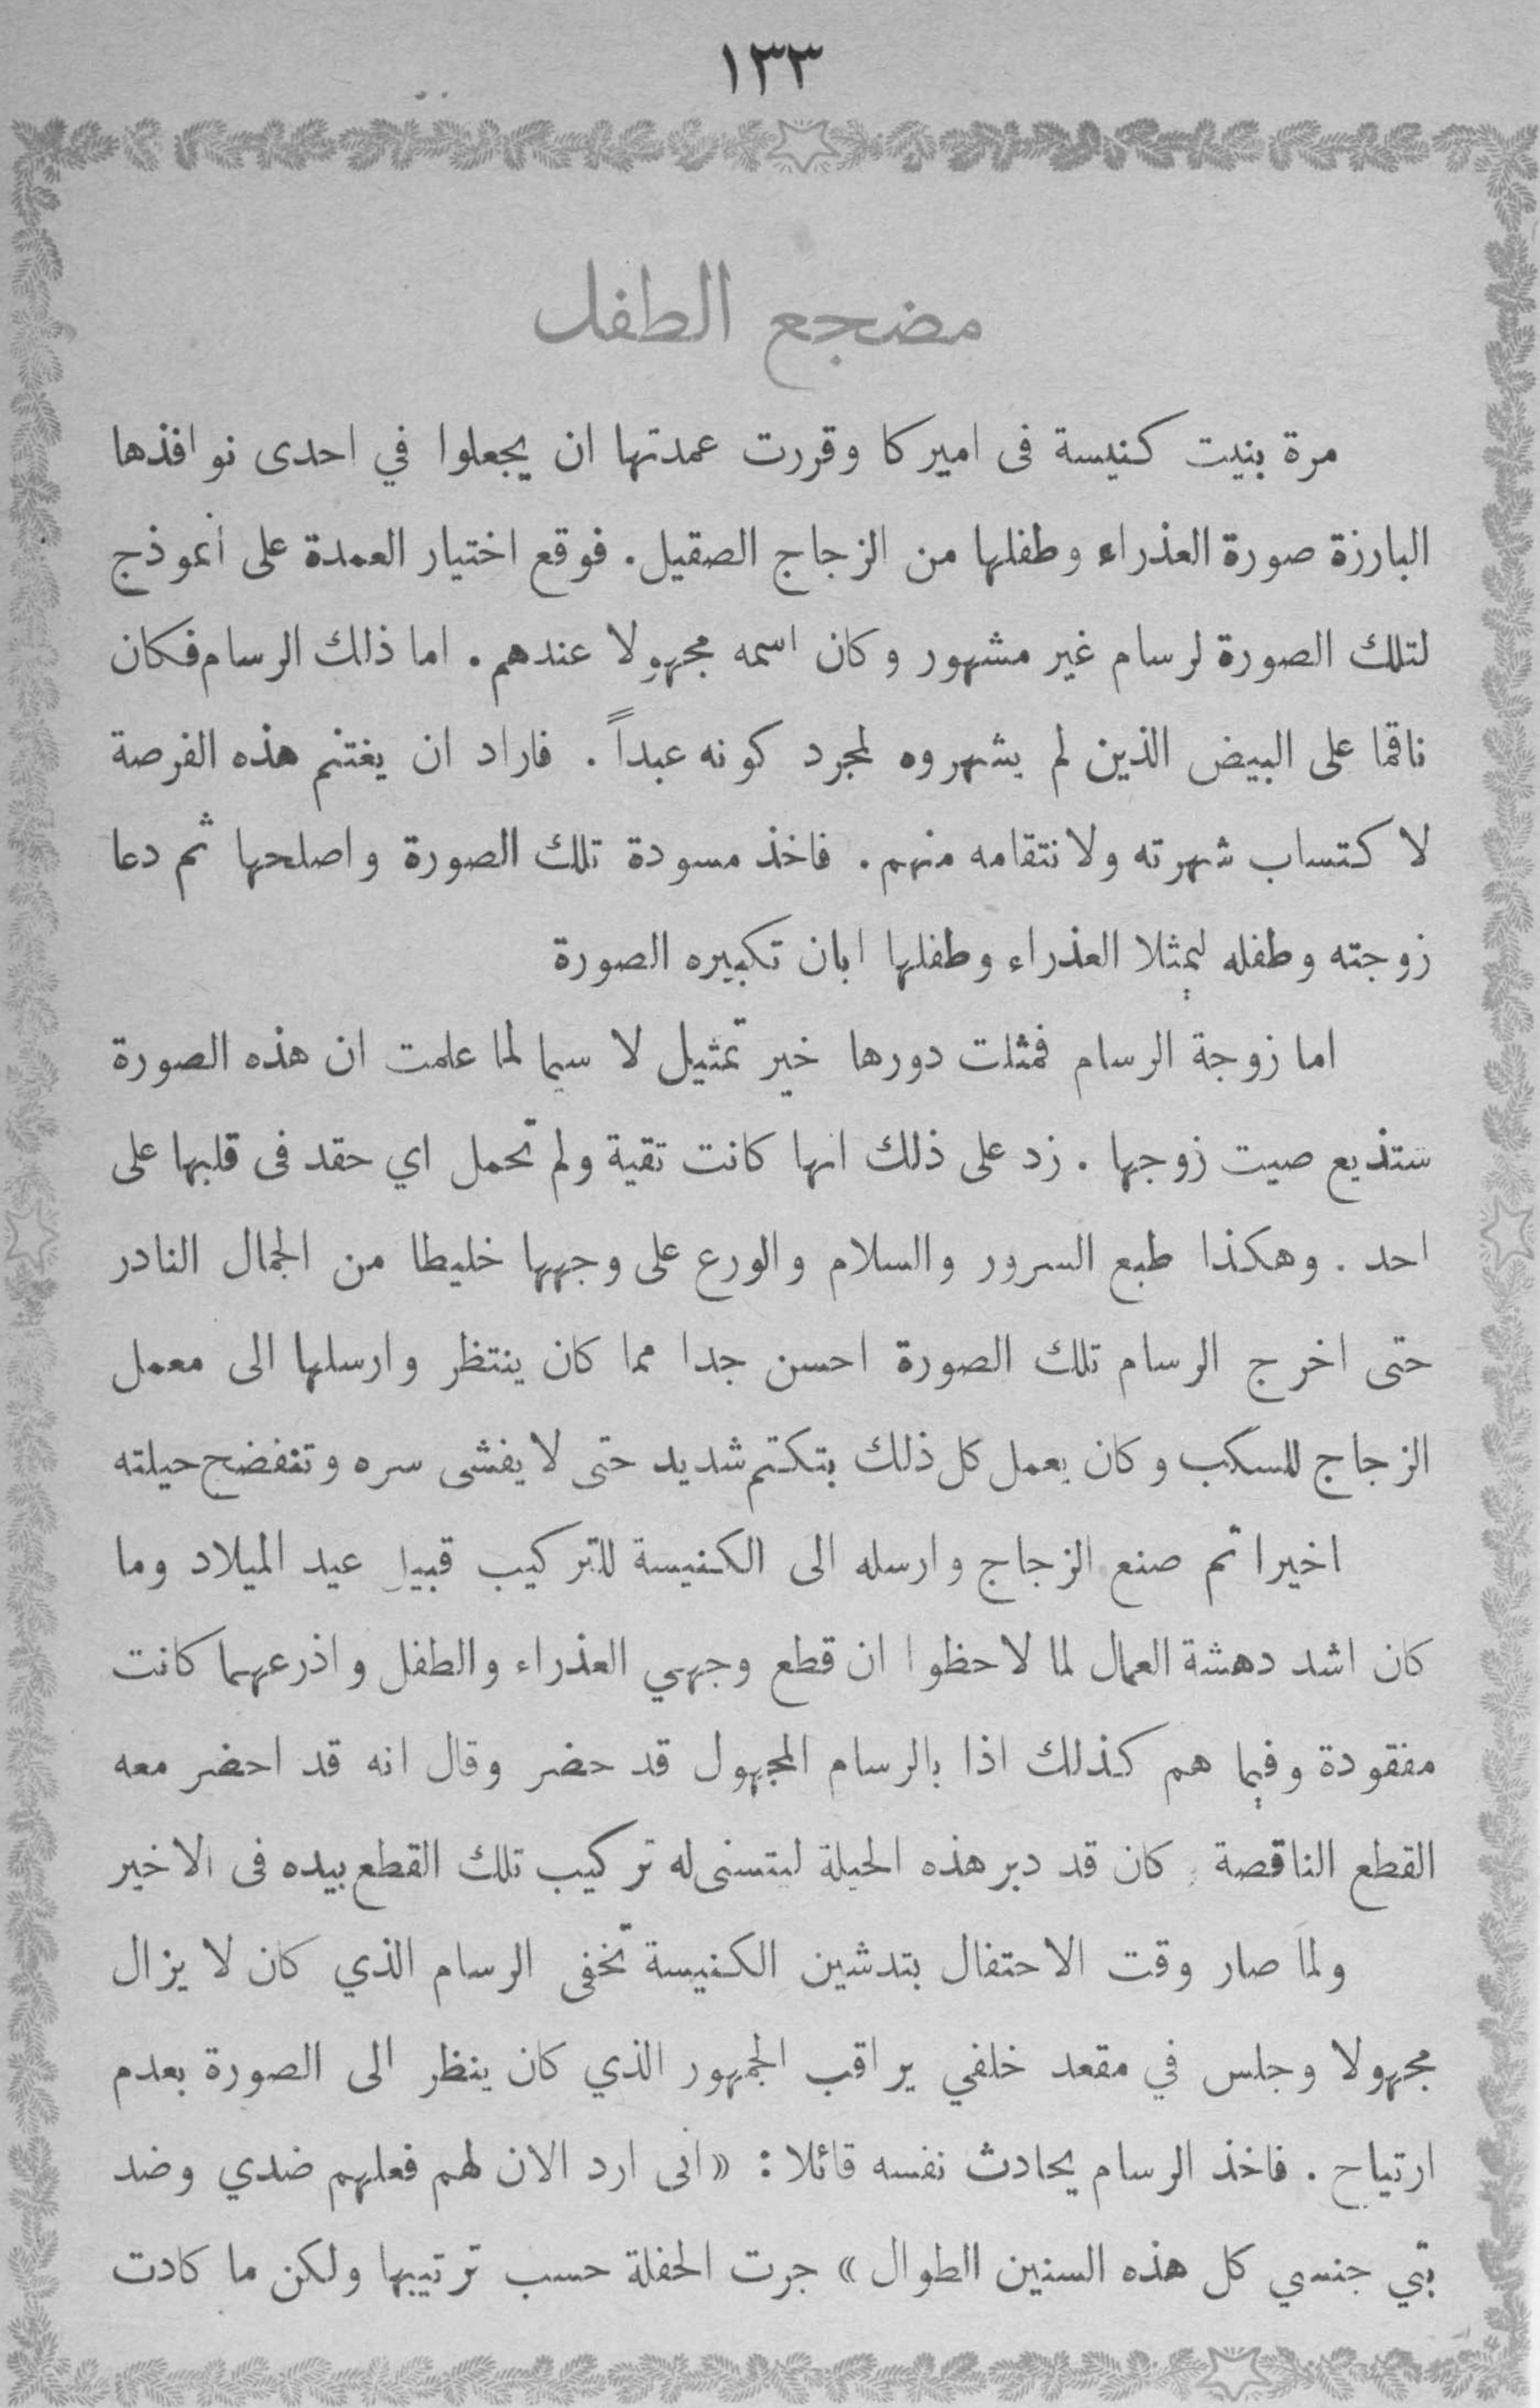 ١٣٣
مضجع الطفل
مرة بنيت كنيسة فى اميركا وقررت عمدتها ان يجعلوا في احدى نوافذها
البارزة صورة العذراء وطفلها من الزجاج الصقيل. فوقع اختيار العمدة على أنموذج
لتلك الصورة لرسام غير مشهور وكان اسمه مجهولا عندهم. اما ذلك الرسام فكان
ناقما على البيض الذين لم يشهروه لمجرد كونه عبداً. فاراد ان يغتنم هذه الفرصة
لاكتساب شهرته ولانتقامه منهم. فاخذ مسودة تلك الصورة واصلحها ثم دعا
زوجته وطفله ليمثلا العذراء وطفلها ابان تكبيره الصورة
اما زوجة الرسام فمثلت دورها خير تمثيل لا سيما لما علمت ان هذه الصورة
ستذيع صيت زوجها. زد على ذلك انها كانت تقية ولم تحمل اي حقد فى قلبها على
احد. وهكذا طبع السرور والسلام والورع على وجهها خليطا من الجمال النادر
حتى اخرج الرسام تلك الصورة احسن جدا مما كان ينتظر وارسلها الى معمل
الزجاج للسكب وكان يعمل كل ذلك بتكتم شديد حتى لا يفشى سره وتنفضح حيلته
اخيرا تم صنع الزجاج وارسله الى الكنيسة للتركيب قبيل عيد الميلاد وما
كان اشد دهشة العمال لما لاحظوا ان قطع وجهي العذراء والطفل واذرعهما كانت
مفقودة وفيما هم كذلك اذا بالرسام المجهول قد حضر وقال انه قد احضر معه
القطع الناقصة. كان قد دبر هذه الحيلة ليتسنى له تركيب تلك القطع بيده فى الاخير
ولما صار وقت الاحتفال بتدشين الكنيسة تخفى الرسام الذي كان لا يزال
مجهولا وجلس في مقعد خلفي يراقب الجمهور الذي كان ينظر الى الصورة بعدم
ارتياح. فاخذ الرسام يحادث نفسه قائلا: «انى ارد الان لهم فعلهم ضدي وضد
بني جنسي كل هذه السنين الطوال» جرت الحفلة حسب ترتيبها ولكن ما كادت